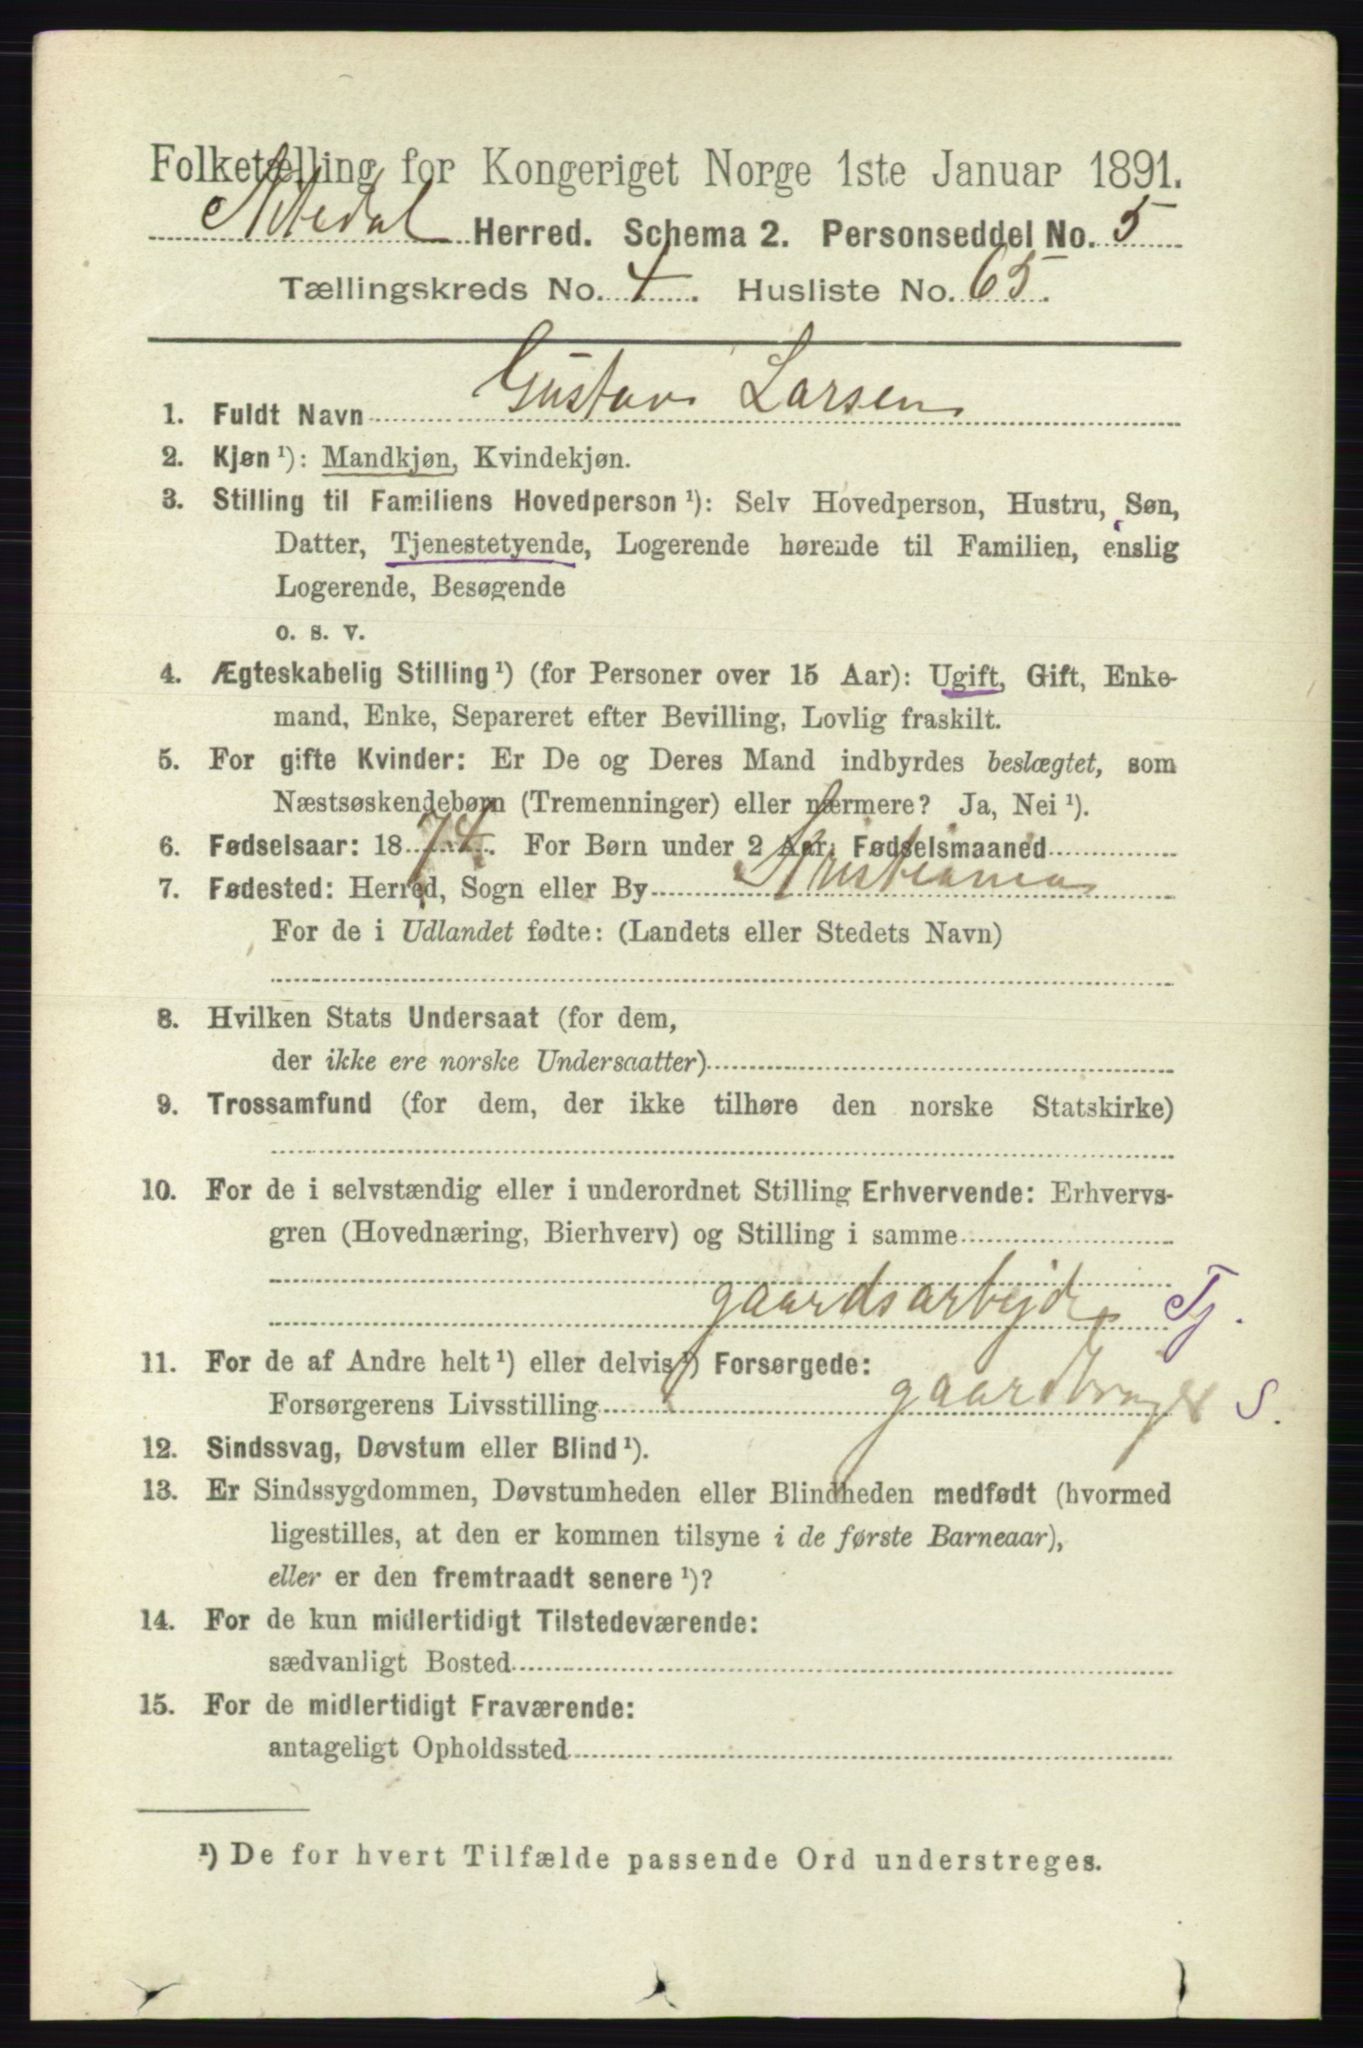 Folketælling for Kongeriget Norge 1ste Januar 1891.
Nitedal Herred. Schema 2. Personseddel No. 5
Tællingskreds No. 4. Husliste No. 65.
1. Fuldt Navn Gustav Larsen
2. Kjøn ¹): Mandkjøn, Kvindekjøn.
3. Stilling til Familiens Hovedperson ¹): Selv Hovedperson, Hustru, Søn,
Datter, Tjenestetyende, Logerende hørende til Familien, enslig
Logerende, Besøgende
o. s. v.
4. Ægteskabelig Stilling ¹) (for Personer over 15 Aar): Ugift, Gift, Enke-
mand, Enke, Separeret efter Bevilling, Lovlig fraskilt.
5. For gifte Kvinder: Er De og Deres Mand indbyrdes beslægtet, som
Næstsøskendebørn (Tremenninger) eller nærmere? Ja, Nei ¹).
6. Fødselsaar: 1874. For Børn under 2 Aar: Fødselsmaaned
7. Fødested: Herred, Sogn eller By Kristiania
For de i Udlandet fødte: (Landets eller Stedets Navn)
8. Hvilken Stats Undersaat (for dem,
der ikke ere norske Undersaatter)
9. Trossamfund (for dem, der ikke tilhøre den norske Statskirke)
10. For de i selvstændig eller i underordnet Stilling Erhvervende: Erhvervs-
gren (Hovednæring, Bierhverv) og Stilling i samme
gaardsarbejde Tj.
11. For de af Andre helt ¹) eller delvis ¹) Forsørgede:
Forsørgerens Livsstilling gaardbruger S.
12. Sindssvag, Døvstum eller Blind ¹).
13. Er Sindssygdommen, Døvstumheden eller Blindheden medfødt (hvormed
ligestilles, at den er kommen tilsyne i de første Barneaar),
eller er den fremtraadt senere ¹)?
14. For de kun midlertidigt Tilstedeværende:
sædvanligt Bosted
15. For de midlertidigt Fraværende:
antageligt Opholdssted
¹) De for hvert Tilfælde passende Ord understreges.